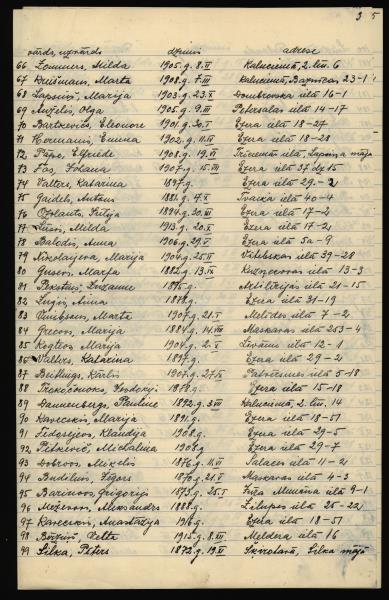 3 5
vārds, uzvārds dzimis adrese
66 Zommers, Milda 1905.g. 8.II Kalnciemā, 2.lin. 6
67 Krišmans Marta 1908.g. 7.III Kalnciemā, Baznīcas 23-1
68 Lapsiņš, Marija 1903.g. 23.X Dombrovska ielā 16-1
69 Auzelis, Olga 1905.g. 9.III Pētersalas ielā 14-17
70 Bartkevičs, Eleonore 1901.g. 30.I Ezera ielā 18-27
71 Hermanis, Emma 1902.g. 11.IV Ezera ielā 18-28
72 Pūpe, Elfrīde 1908.g. 19.VI ielā, Lapsiņa māja
73 Fos, 1907.g. 15.III Ezera ielā 37 dz 15
74 Valters, Katarina 1897.g. Ezera ielā 29-2
75 Gaidels, Antons 1881.g. 4.X Tvaika ielā 40-4
76 Otzlauts, Jūlija 1894.g. 30.III Ezera ielā 17-2
77 Lūsis, Milda 1913.g. 20.X Ezera ielā 17-21
78 Balodis, Anna 1906.g. 29.V Ezera ielā 5a-9
79 Nikolajeva, Marija 1904.g. 25.II Vitebskas ielā 39-28
80 Gusevs, Marfa 1882.g. 13.IX Kuzņecovas ielā 13-3
81 Suzanne 1895.g. Artilērijas ielā 21-15
82 Anna 1878.g. Ezera ielā 31-19
83 Vanibsens, Marta 1907.g. 21.I Melīdes ielā 7-2
84 Grecovs, Marija 1884.g. 14.VIII Maskavas ielā 253-4
85 Kogtevs Marija 1904.g. 2.V Līvānu ielā 12-1
86 Valters, Katarina 1897.g. Ezera ielā 29-2
87 Beitlings, Kārlis 1907.g. 27.IX Patversmes ielā 5-18
88 1878.g. Ezera ielā 15-18
89 Dannenbergs, Pauline 1892.g. 3.VIII Kalnciemā, 2.lin. 14
90 Kaveckis, Marija 1891.g. Ezera ielā 18-51
91 Fedosejevs, Klaudija 1908.g. Ezera ielā 29-5
92 Petkevičs, Michalina 1908.g. Ezera ielā 29-7
93 Dobrovs, Miķelis 1876.g. 11.VI Salacas ielā 11-2
94 Budeliņš, Jegors 1870.g. 21.V Maskavas ielā 4-3
95 Barinovs, Grigorijs 1873.g. 25.I Friča ielā 9-1
96 Mežerovs, Aleksandrs 1888.g. Zilupes ielā 25-22
97 Kaveckis, Anastāzija 1916.g. Ezera ielā 18-51
98 Bērziņš, Velta 1915.g. 8.VIII Meldera ielā 16
99 Silka, Pēters 1872.g. 19.II Šķirotavā, Silka mājā